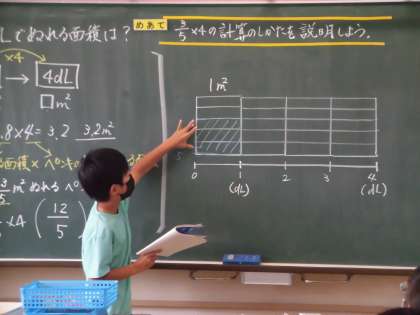 しでぬれる面積は?
×4
→ 4dL
□m²
.8×4=3.2 3.2m²
3/5 m² ぬれる
×4 (12/5)
めあて
3/5×4の計算のしかたを説明しよう。
1m²
0 1 2 3 4
(dL) (dL)